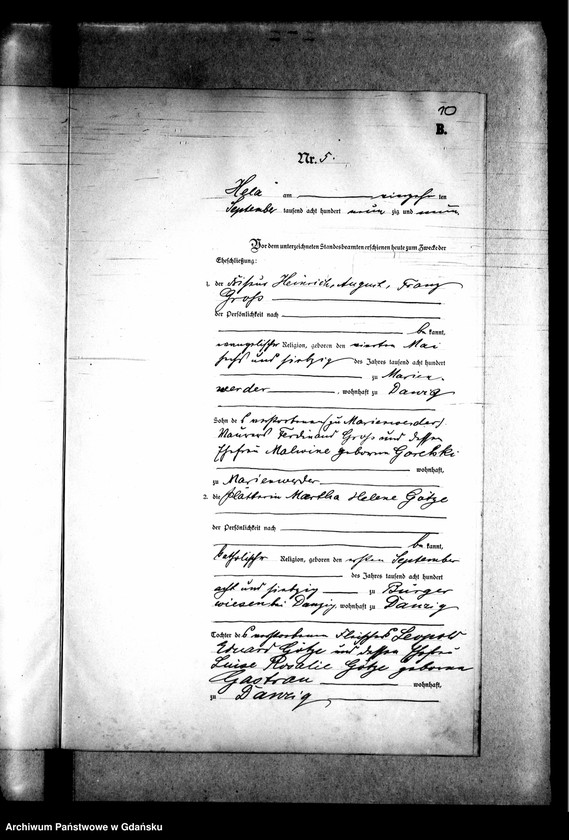 10
B.
Nr. 5.
Hela am vierzehn ten
September tausend acht hundert neun zig und neun
Vor dem unterzeichneten Standesbeamten erschienen heute zum Zwecke der
Eheschließung:
1. der Friseur Heinrich, August, Franz
Groß
der Persönlichkeit nach
be kannt,
evangelischer Religion, geboren den vierten Mai
sechs und siebzig des Jahres tausend acht hundert
zu Marien-
werder, wohnhaft zu Danzig
Sohn des verstorbenen zu Marienwerder
Maurers Ferdinand Groß und dessen
Ehefrau Malwine geborene Goretzki
wohnhaft,
zu Marienwerder
2. die Plätterin Martha Helene Götze
der Persönlichkeit nach
be kannt,
katholischer Religion, geboren den ersten September
des Jahres tausend acht hundert
acht und siebzig zu Bürger
wiesen bei Danzig, wohnhaft zu Danzig
Tochter des verstorbenen Fleischers Leopold
Eduard Götze und dessen Ehefrau
Luise Rosalie Götze geborene
Gastrau wohnhaft,
zu Danzig
Archiwum Państwowe w Gdańsku